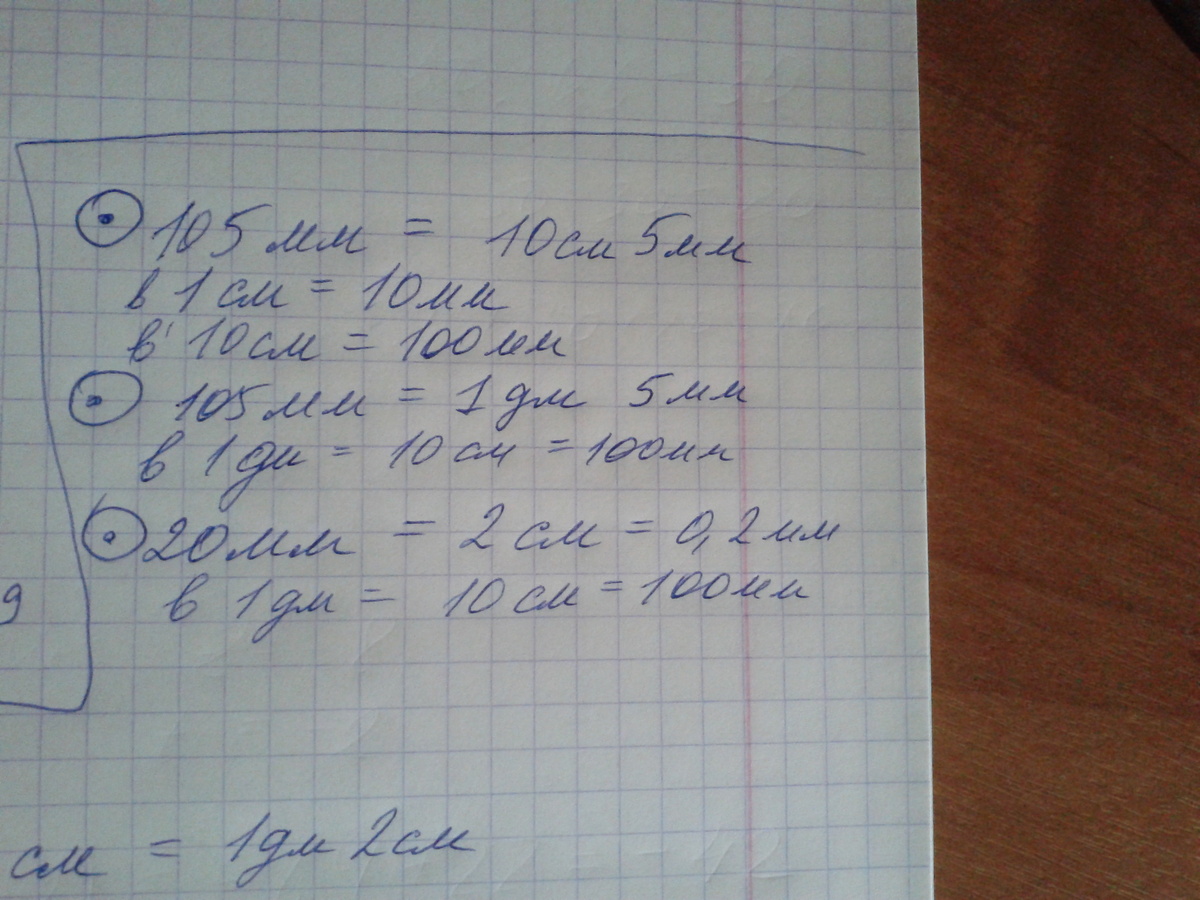 105 мм = 10 см 5 мм
в 1 см = 10 мм
в 10 см = 100 мм
105 мм = 1 дм 5 мм
в 1 дм = 10 см = 100 мм
20 мм = 2 см = 0,2 мм
9
в 1 дм = 10 см = 100 мм
см = 1 дм 2 см